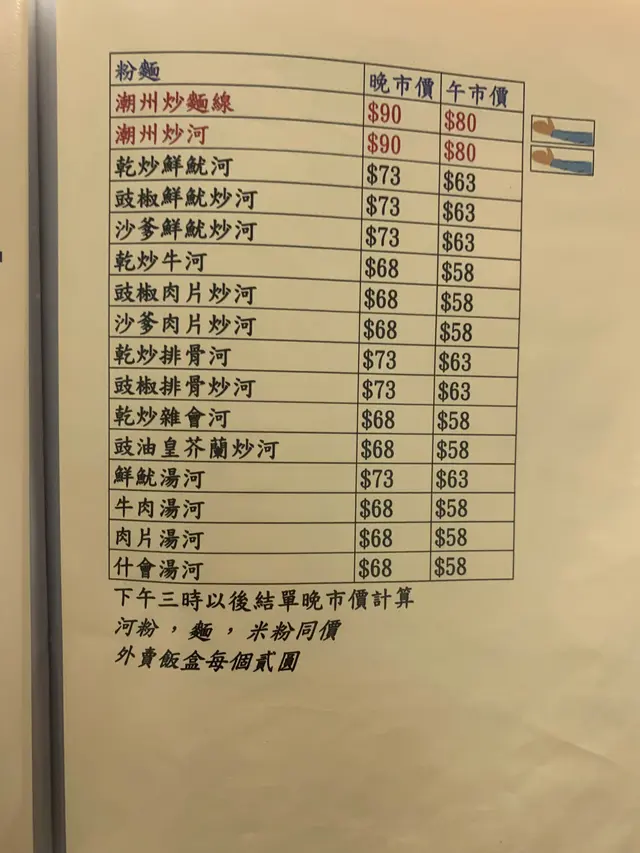 粉麵 晚市價 午市價
潮州炒麵線 $90 $80
潮州炒河 $90 $80
乾炒鮮魷河 $73 $63
豉椒鮮魷炒河 $73 $63
沙爹鮮魷炒河 $73 $63
乾炒牛河 $68 $58
豉椒肉片炒河 $68 $58
沙爹肉片炒河 $68 $58
乾炒排骨河 $73 $63
豉椒排骨炒河 $73 $63
乾炒雜會河 $68 $58
豉油皇芥蘭炒河 $68 $58
鮮魷湯河 $73 $63
牛肉湯河 $68 $58
肉片湯河 $68 $58
什會湯河 $68 $58
下午三時以後結單晚市價計算
河粉，麵，米粉同價
外賣飯盒每個貳圓